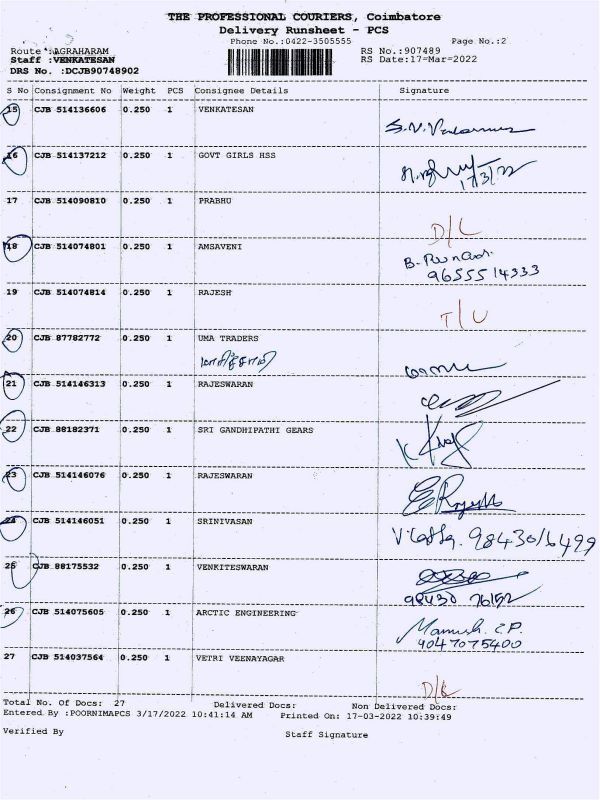 THE PROFESSIONAL COURIERS, Coimbatore
Delivery Runsheet - PCS
Phone No.:0422-3505555 Page No.:2
Route :AGRAHARAM RS No.:907489
Staff :VENKATESAN RS Date:17-Mar-2022
DRS No. :DCJB90748902
S No Consignment No Weight PCS Consignee Details Signature
15 CJB 514136606 0.250 1 VENKATESAN
S.V.
16 CJB 514137212 0.250 1 GOVT GIRLS HSS
17/3/22
17 CJB 514090810 0.250 1 PRABHU
D/L
18 CJB 514074801 0.250 1 AMSAVENI
B.
9655514333
19 CJB 514074814 0.250 1 RAJESH
T/U
20 CJB 87782772 0.250 1 UMA TRADERS
21 CJB 514146313 0.250 1 RAJESWARAN
22 CJB 88182371 0.250 1 SRI GANDHIPATHI GEARS
23 CJB 514146076 0.250 1 RAJESWARAN
24 CJB 514146051 0.250 1 SRINIVASAN
9843016499
25 CJB 88175532 0.250 1 VENKITESWARAN
98430 76152
26 CJB 514075605 0.250 1 ARCTIC ENGINEERING
Manush. E.P.
9047075400
27 CJB 514037564 0.250 1 VETRI VEENAYAGAR
D/L
Total No. Of Docs: 27 Delivered Docs: Non Delivered Docs:
Entered By :POORNIMAPCS 3/17/2022 10:41:14 AM Printed On: 17-03-2022 10:39:49
Verified By Staff Signature